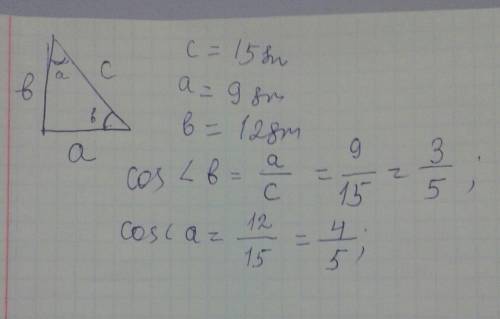 в а c в а
c = 15дм
a = 9дм
в = 12дм
cos ∠ в = a/c = 9/15 = 3/5 ;
cos ∠ a = 12/15 = 4/5 ;